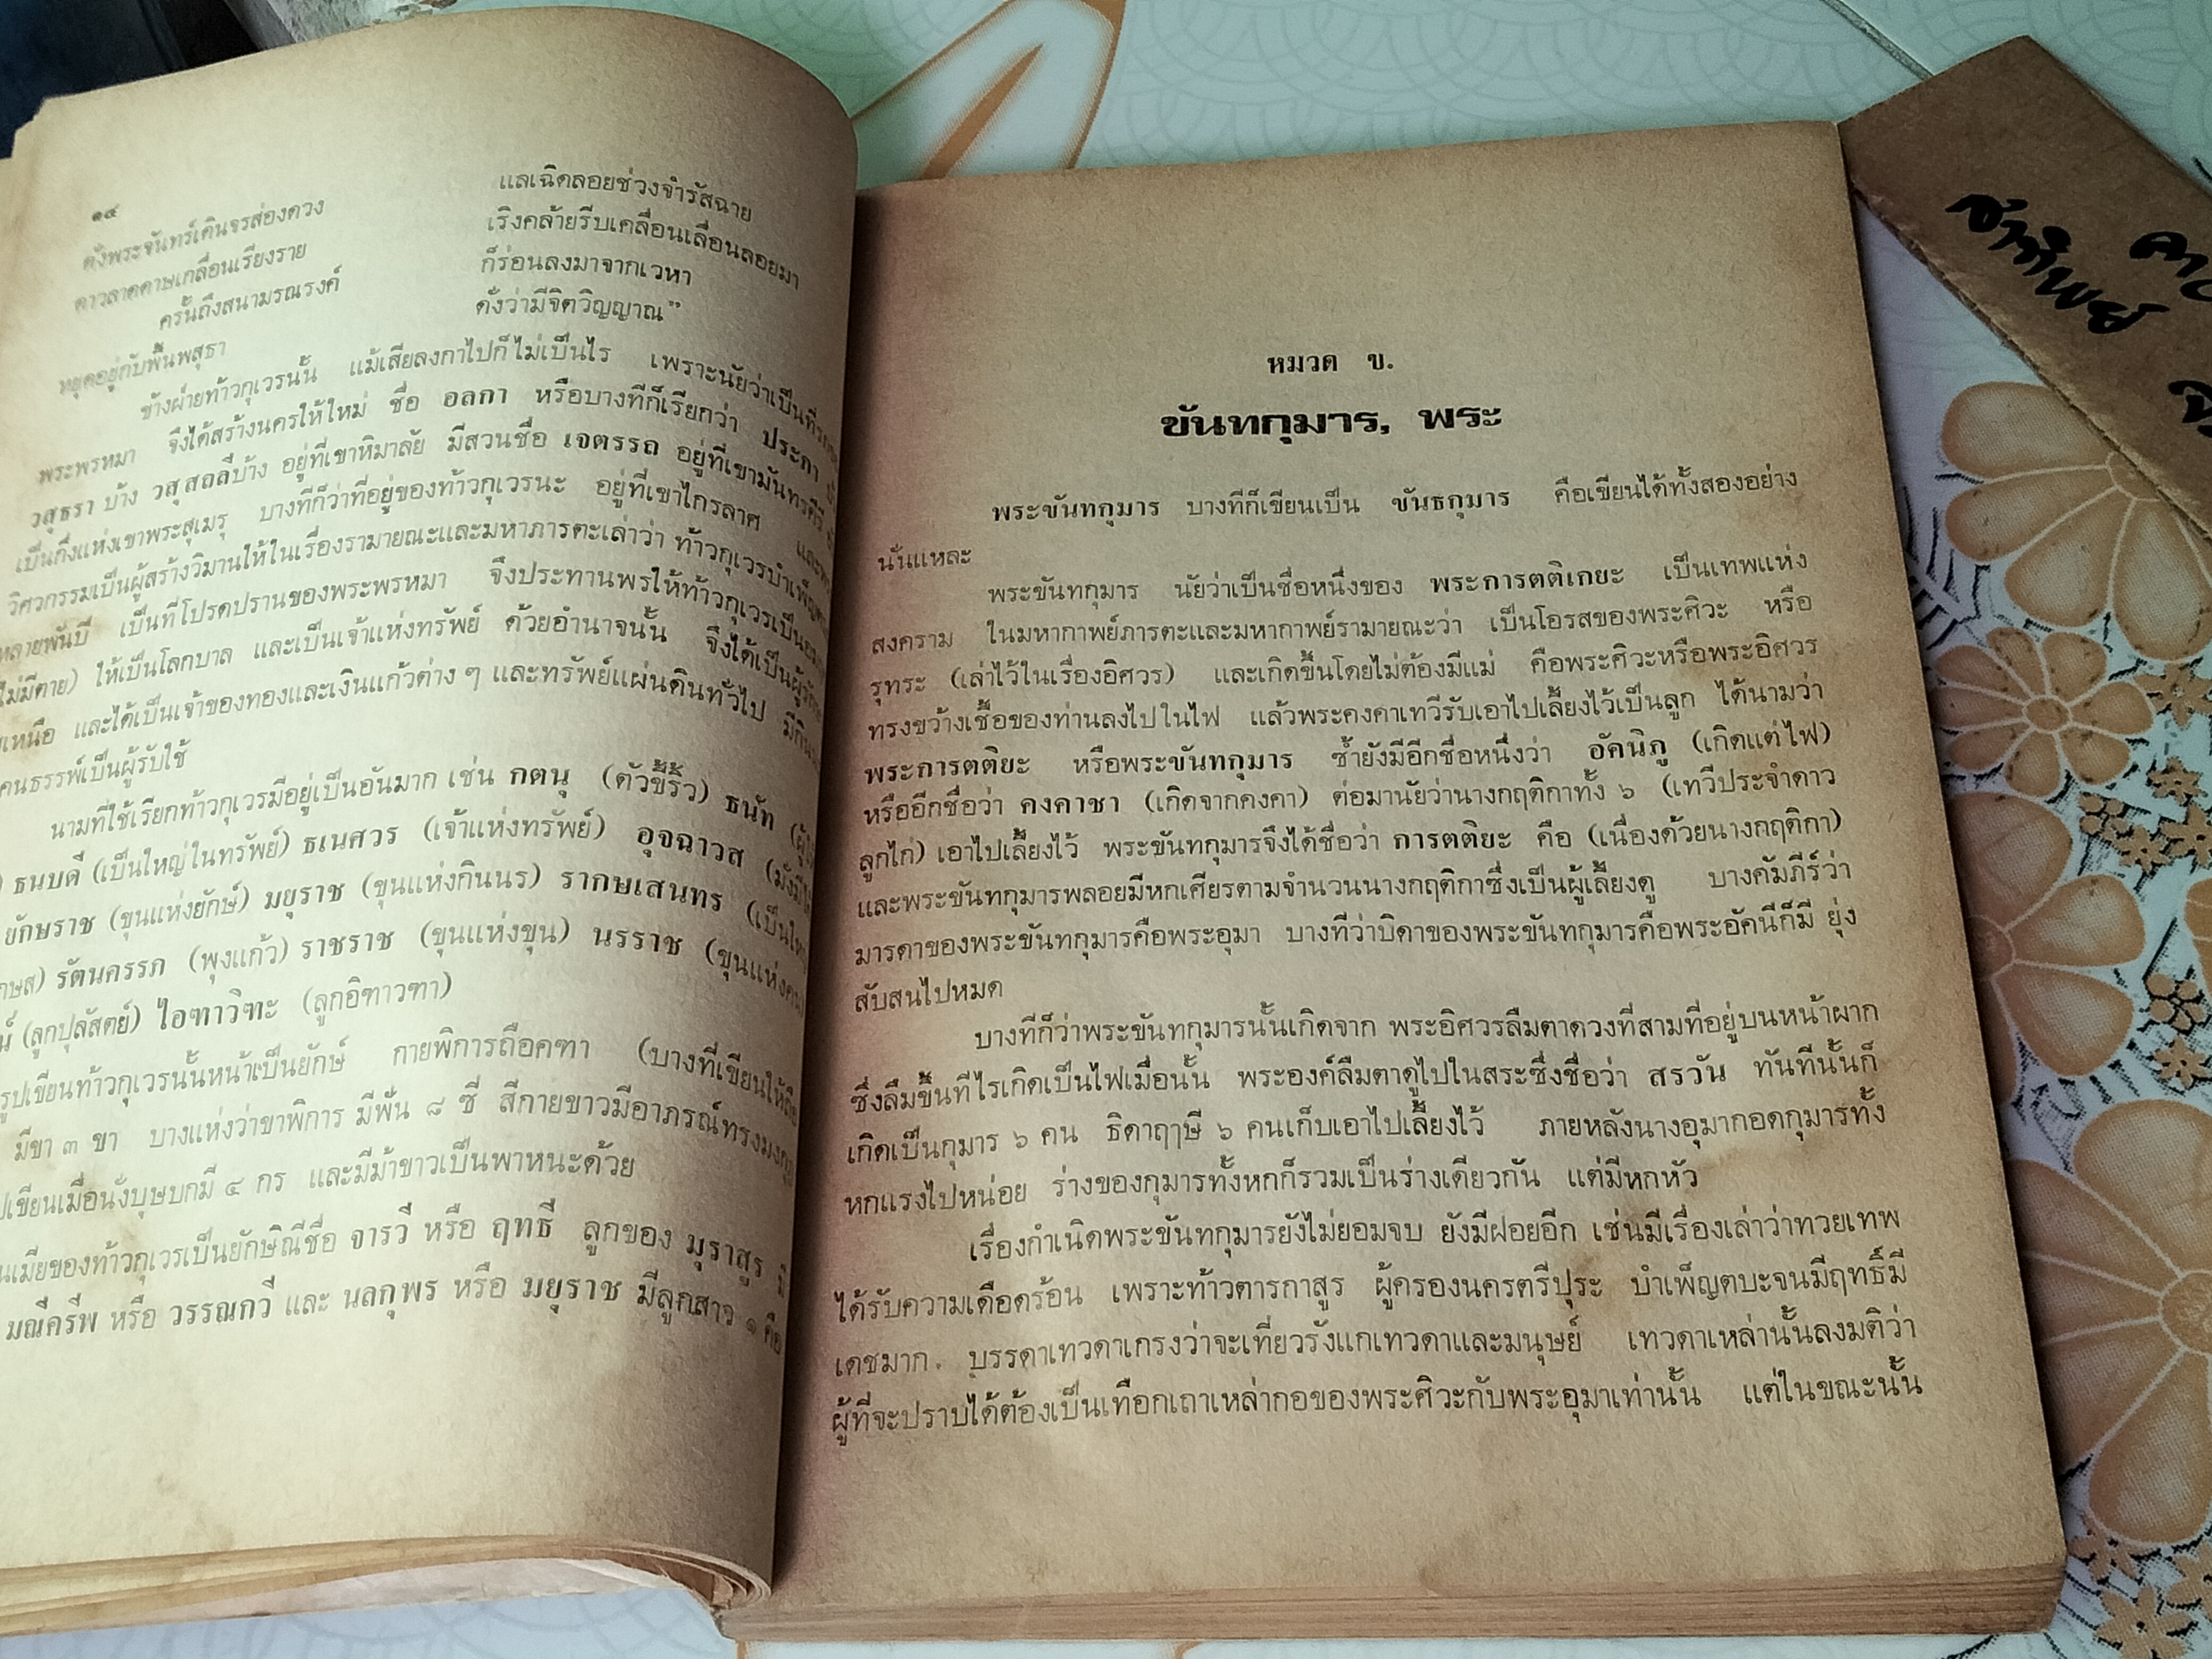 ๑๔
ดั่งพระจันทร์เดินจรส่องดวง แลเฉิดลอยช่วงจำรัสฉาย
ดาวลาดดาษเกลื่อนเรียงราย เริงคล้ายรีบเคลื่อนเลื่อนลอยมา
ครั้นถึงสนามรณรงค์ ก็ร่อนลงมาจากเวหา
หยุดอยู่กับพื้นพสุธา ดั่งว่ามีจิตวิญญาณ”
ข้างฝ่ายท้าวกุเวรนั้น แม้เสียลงกาไปก็ไม่เป็นไร เพราะนัยว่าเป็นที่
พระพรหมา จึงได้สร้างนครให้ใหม่ ชื่อ อลกา หรือบางทีก็เรียกว่า ประภา
วสุธรา บ้าง วสุสถลีบ้าง อยู่ที่เขาหิมาลัย มีสวนชื่อ เจตรรถ อยู่ที่เขามันทรคีรี
เป็นกิ่งแห่งเขาพระสุเมรุ บางทีก็ว่าที่อยู่ของท้าวกุเวรนะ อยู่ที่เขาไกรลาศ
วิศวกรรมเป็นผู้สร้างวิมานให้ในเรื่องรามายณะและมหาภารตะเล่าว่า ท้าวกุเวรบำเพ็ญ
หลายพันปี เป็นที่โปรดปรานของพระพรหมา จึงประทานพรให้ท้าวกุเวรเป็น
ไม่มีตาย) ให้เป็นโลกบาล และเป็นเจ้าแห่งทรัพย์ ด้วยอำนาจนั้น จึงได้เป็นผู้
เหนือ และได้เป็นเจ้าของทองและเงินแก้วต่าง ๆ และทรัพย์แผ่นดินทั่วไป
คนธรรพ์เป็นผู้รับใช้
นามที่ใช้เรียกท้าวกุเวรมีอยู่เป็นอันมาก เช่น กตนุ (ตัวขี้ริ้ว) ธนัท
) ธนบดี (เป็นใหญ่ในทรัพย์) ธเนศวร (เจ้าแห่งทรัพย์) อุจฉาวส
ยักษราช (ขุนแห่งยักษ์) มยุราช (ขุนแห่งกินนร) รากษเสนทร
รัตนครรภ (พุงแก้ว) ราชราช (ขุนแห่งขุน) นรราช (ขุนแห่งคน
(ลูกปุลัสตย์) ไอฑาวิฑะ (ลูกอิฑาวฑา)
รูปเขียนท้าวกุเวรนั้นหน้าเป็นยักษ์ กายพิการถือคฑา (บางที่เขียนให้ถือ
มีขา ๓ ขา บางแห่งว่าขาพิการ มีฟัน ๘ ซี่ สีกายขาวมีอาภรณ์ทรงมงกุฎ
เขียนเมื่อนั่งบุษบกมี ๔ กร และมีม้าขาวเป็นพาหนะด้วย
เมียของท้าวกุเวรเป็นยักษิณีชื่อ จารวี หรือ ฤทธี ลูกของ มุราสูร
มณีครีพ หรือ วรรณกวี และ นลกุพร หรือ มยุราช มีลูกสาว ๑ คือ
หมวด ข.
ขันทกุมาร, พระ
พระขันทกุมาร บางทีก็เขียนเป็น ขันธกุมาร คือเขียนได้ทั้งสองอย่าง
นั่นแหละ
พระขันทกุมาร นัยว่าเป็นชื่อหนึ่งของ พระการตติเกยะ เป็นเทพแห่ง
สงคราม ในมหากาพย์ภารตะและมหากาพย์รามายณะว่า เป็นโอรสของพระศิวะ หรือ
รุทระ (เล่าไว้ในเรื่องอิศวร) และเกิดขึ้นโดยไม่ต้องมีแม่ คือพระศิวะหรือพระอิศวร
ทรงขว้างเชื้อของท่านลงไปในไฟ แล้วพระคงคาเทวีรับเอาไปเลี้ยงไว้เป็นลูก ได้นามว่า
พระการตติยะ หรือพระขันทกุมาร ซ้ำยังมีอีกชื่อหนึ่งว่า อัคนิภู (เกิดแต่ไฟ)
หรืออีกชื่อว่า คงคาชา (เกิดจากคงคา) ต่อมานัยว่านางกฤติกาทั้ง ๖ (เทวีประจำดาว
ลูกไก่) เอาไปเลี้ยงไว้ พระขันทกุมารจึงได้ชื่อว่า การตติยะ คือ (เนื่องด้วยนางกฤติกา)
และพระขันทกุมารพลอยมีหกเศียรตามจำนวนนางกฤติกาซึ่งเป็นผู้เลี้ยงดู บางคัมภีร์ว่า
มารดาของพระขันทกุมารคือพระอุมา บางทีว่าบิดาของพระขันทกุมารคือพระอัคนีก็มี ยุ่ง
สับสนไปหมด
บางทีก็ว่าพระขันทกุมารนั้นเกิดจาก พระอิศวรลืมตาดวงที่สามที่อยู่บนหน้าผาก
ซึ่งลืมขึ้นทีไรเกิดเป็นไฟเมื่อนั้น พระองค์ลืมตาดูไปในสระซึ่งชื่อว่า สรวัน ทันทีนั้นก็
เกิดเป็นกุมาร ๖ คน ธิดาฤๅษี ๖ คนเก็บเอาไปเลี้ยงไว้ ภายหลังนางอุมากอดกุมารทั้ง
หกแรงไปหน่อย ร่างของกุมารทั้งหกก็รวมเป็นร่างเดียวกัน แต่มีหกหัว
เรื่องกำเนิดพระขันทกุมารยังไม่ยอมจบ ยังมีฝอยอีก เช่นมีเรื่องเล่าว่าทวยเทพ
ได้รับความเดือดร้อน เพราะท้าวตารกาสูร ผู้ครองนครตรีปุระ บำเพ็ญตบะจนมีฤทธิ์มี
เดชมาก. บรรดาเทวดาเกรงว่าจะเที่ยวรังแกเทวดาและมนุษย์ เทวดาเหล่านั้นลงมติว่า
ผู้ที่จะปราบได้ต้องเป็นเทือกเถาเหล่ากอของพระศิวะกับพระอุมาเท่านั้น แต่ในขณะนั้น